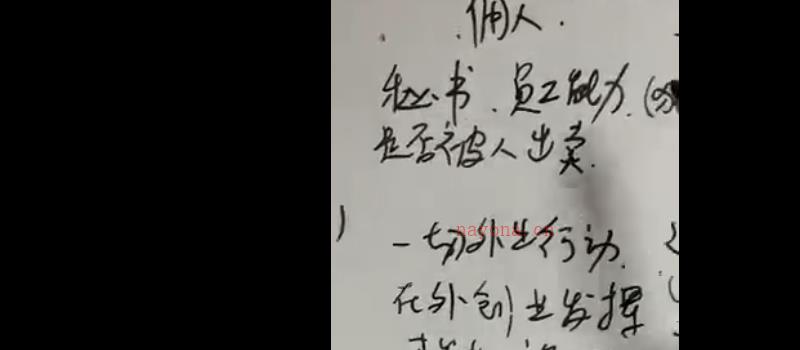 佣人.
秘书.员工能力.(
是否被人出卖.
)
一切外出行动.
在外创业发挥
nayona.cn